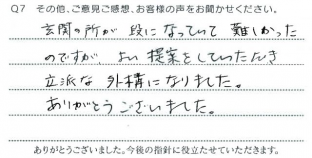 Q7 その他、ご意見ご感想、お客様の声をお聞かせください。
玄関の所が段になっていて難しかった
のですが、よい提案をしていただき
立派な外構になりました。
ありがとうございました。
ありがとうございました。今後の指針に役立たせていただきます。